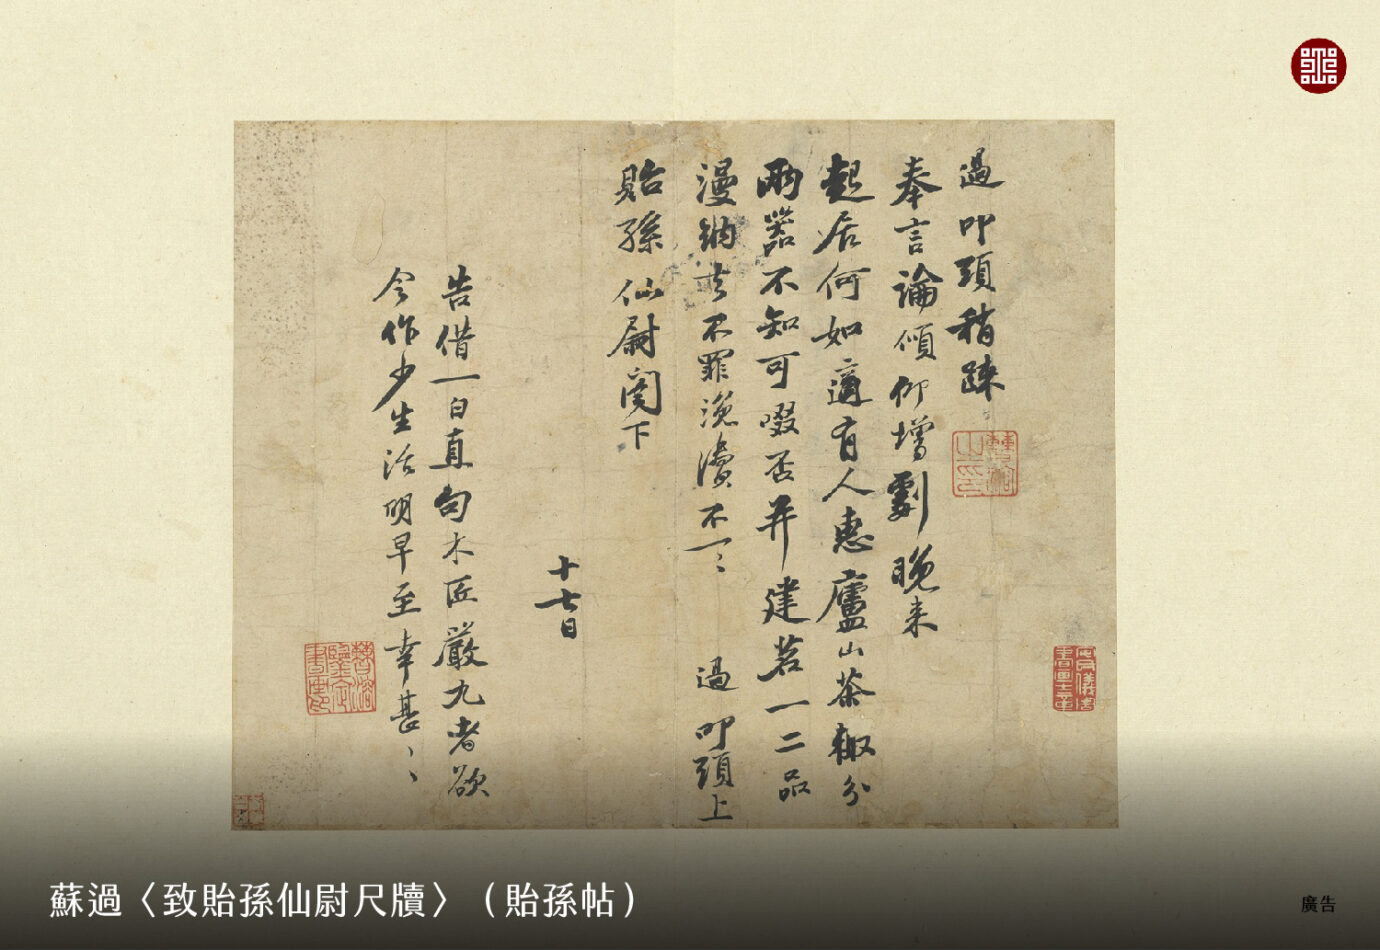 過叩頭稍踈
奉言論傾仰增劇晚来
起居何如適有人惠廬山茶輙分
兩器不知可啜否并建茗一二品
漫納去不罪浼瀆不一〻 過叩頭上
貽孫仙尉閤下
十七日
告借一白直句木匠嚴九者欲
令作少生活明早至幸甚〻〻
蘇過〈致貽孫仙尉尺牘〉（貽孫帖）
廣告